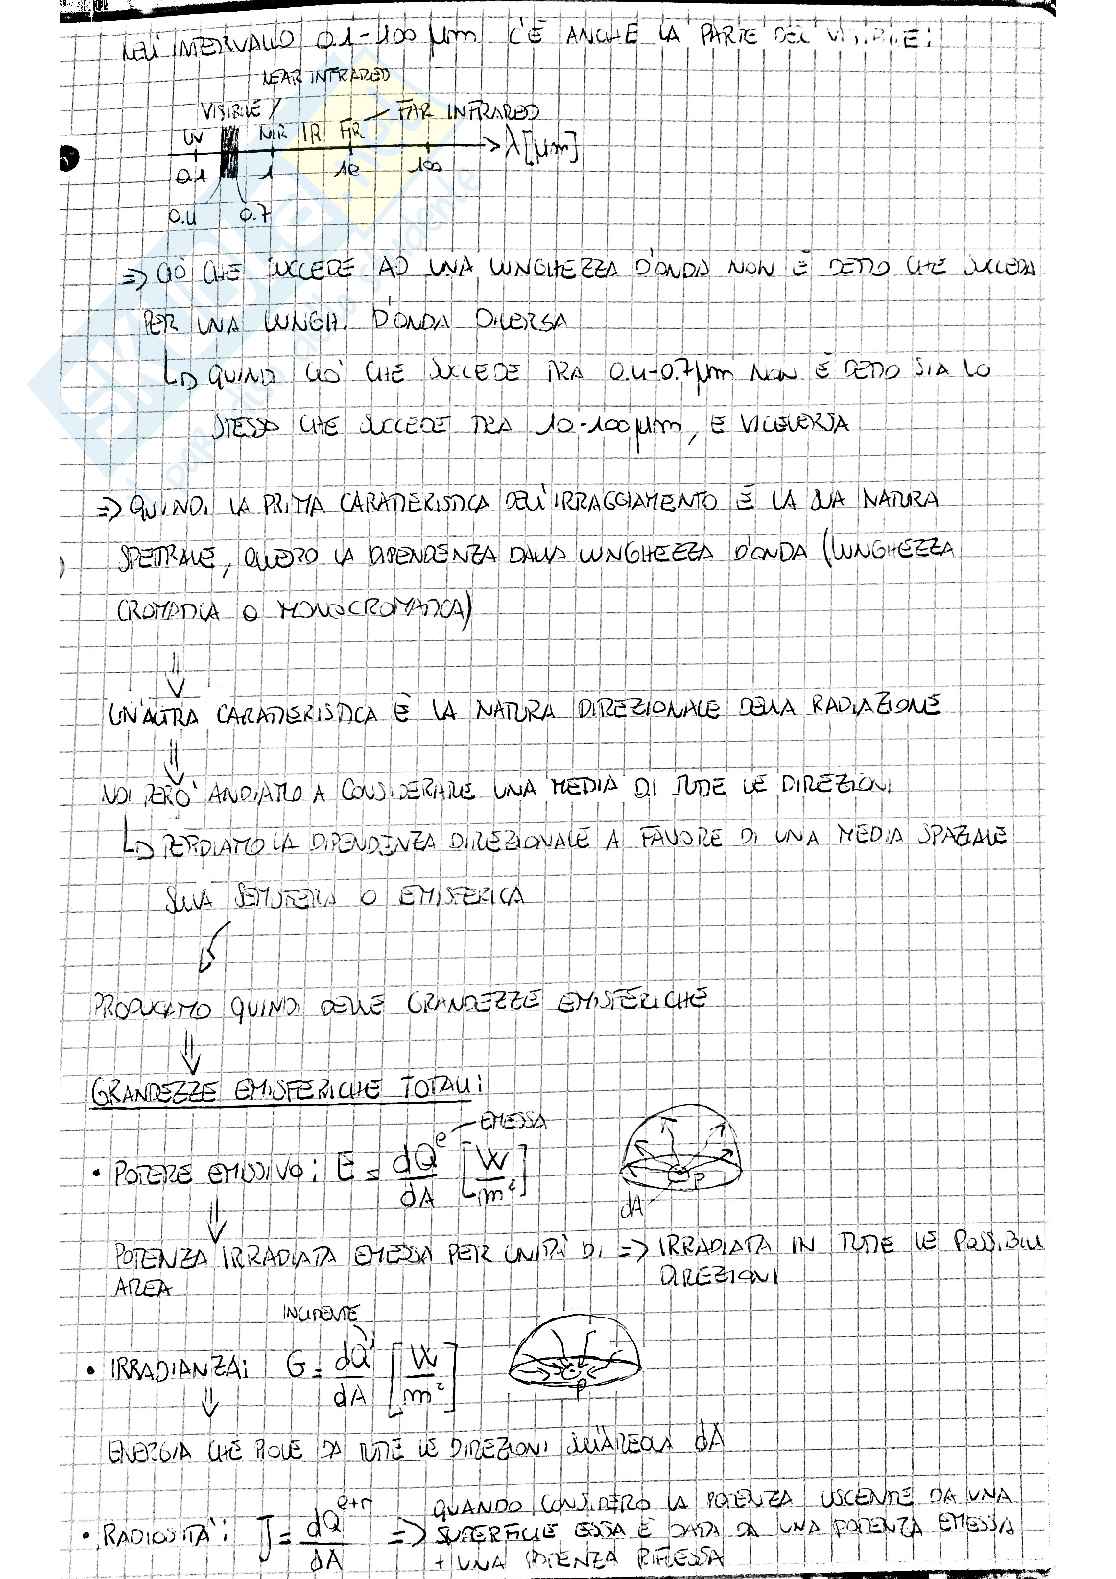 NELL'INTERVALLO 0.1-100 μm C'È ANCHE LA PARTE DEL VISIBILE:
NEAR INFRARED
VISIBILE
FAR INFRARED
UV NIR IR FIR
λ [μm]
0.1 1 10 100
0.4 0.7
=> CIÒ CHE SUCCEDE AD UNA LUNGHEZZA D'ONDA NON È DETTO CHE SUCCEDA
PER UNA LUNGH. D'ONDA DIVERSA
QUINDI CIÒ CHE SUCCEDE TRA 0.4-0.7μm NON È DETTO SIA LO
STESSO CHE SUCCEDE TRA 10-100μm, E VICEVERSA
=> QUINDI LA PRIMA CARATTERISTICA DELL'IRRAGGIAMENTO È LA SUA NATURA
SPETTRALE, OVVERO LA DIPENDENZA DALLA LUNGHEZZA D'ONDA (LUNGHEZZA
CROMATICA O MONOCROMATICA)
UN'ALTRA CARATTERISTICA È LA NATURA DIREZIONALE DELLA RADIAZIONE
NOI PERÒ ANDIAMO A CONSIDERARE UNA MEDIA DI TUTTE LE DIREZIONI
PERDIAMO LA DIPENDENZA DIREZIONALE A FAVORE DI UNA MEDIA SPAZIALE
SULLA SEMISFERA O EMISFERICA
PRODUCIAMO QUINDI DELLE GRANDEZZE EMISFERICHE
GRANDEZZE EMISFERICHE TOTALI:
EMESSA
• POTERE EMISSIVO: E = dQ^e/dA [W/m²]
P
dA
POTENZA IRRADIATA EMESSA PER UNITÀ DI => IRRADIATA IN TUTTE LE POSSIBILI
AREA DIREZIONI
INCIDENTE
• IRRADIANZA: G = dQ^i/dA [W/m²]
P
ENERGIA CHE PIOVE DA TUTTE LE DIREZIONI SULL'AREOLA dA
• RADIOSITÀ: J = dQ^e+r/dA => QUANDO CONSIDERO LA POTENZA USCENTE DA UNA
SUPERFICIE ESSA È DATA DA UNA POTENZA EMESSA
+ UNA POTENZA RIFLESSA